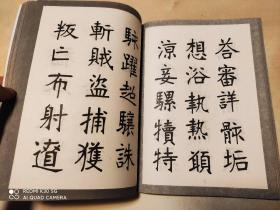 荅審詳骸垢
想浴執熱願
涼騾犢特
駭躍超驤誅
斬賊盜捕獲
叛亡布射遼
REDMI K30 5G
AI QUAD CAMERA